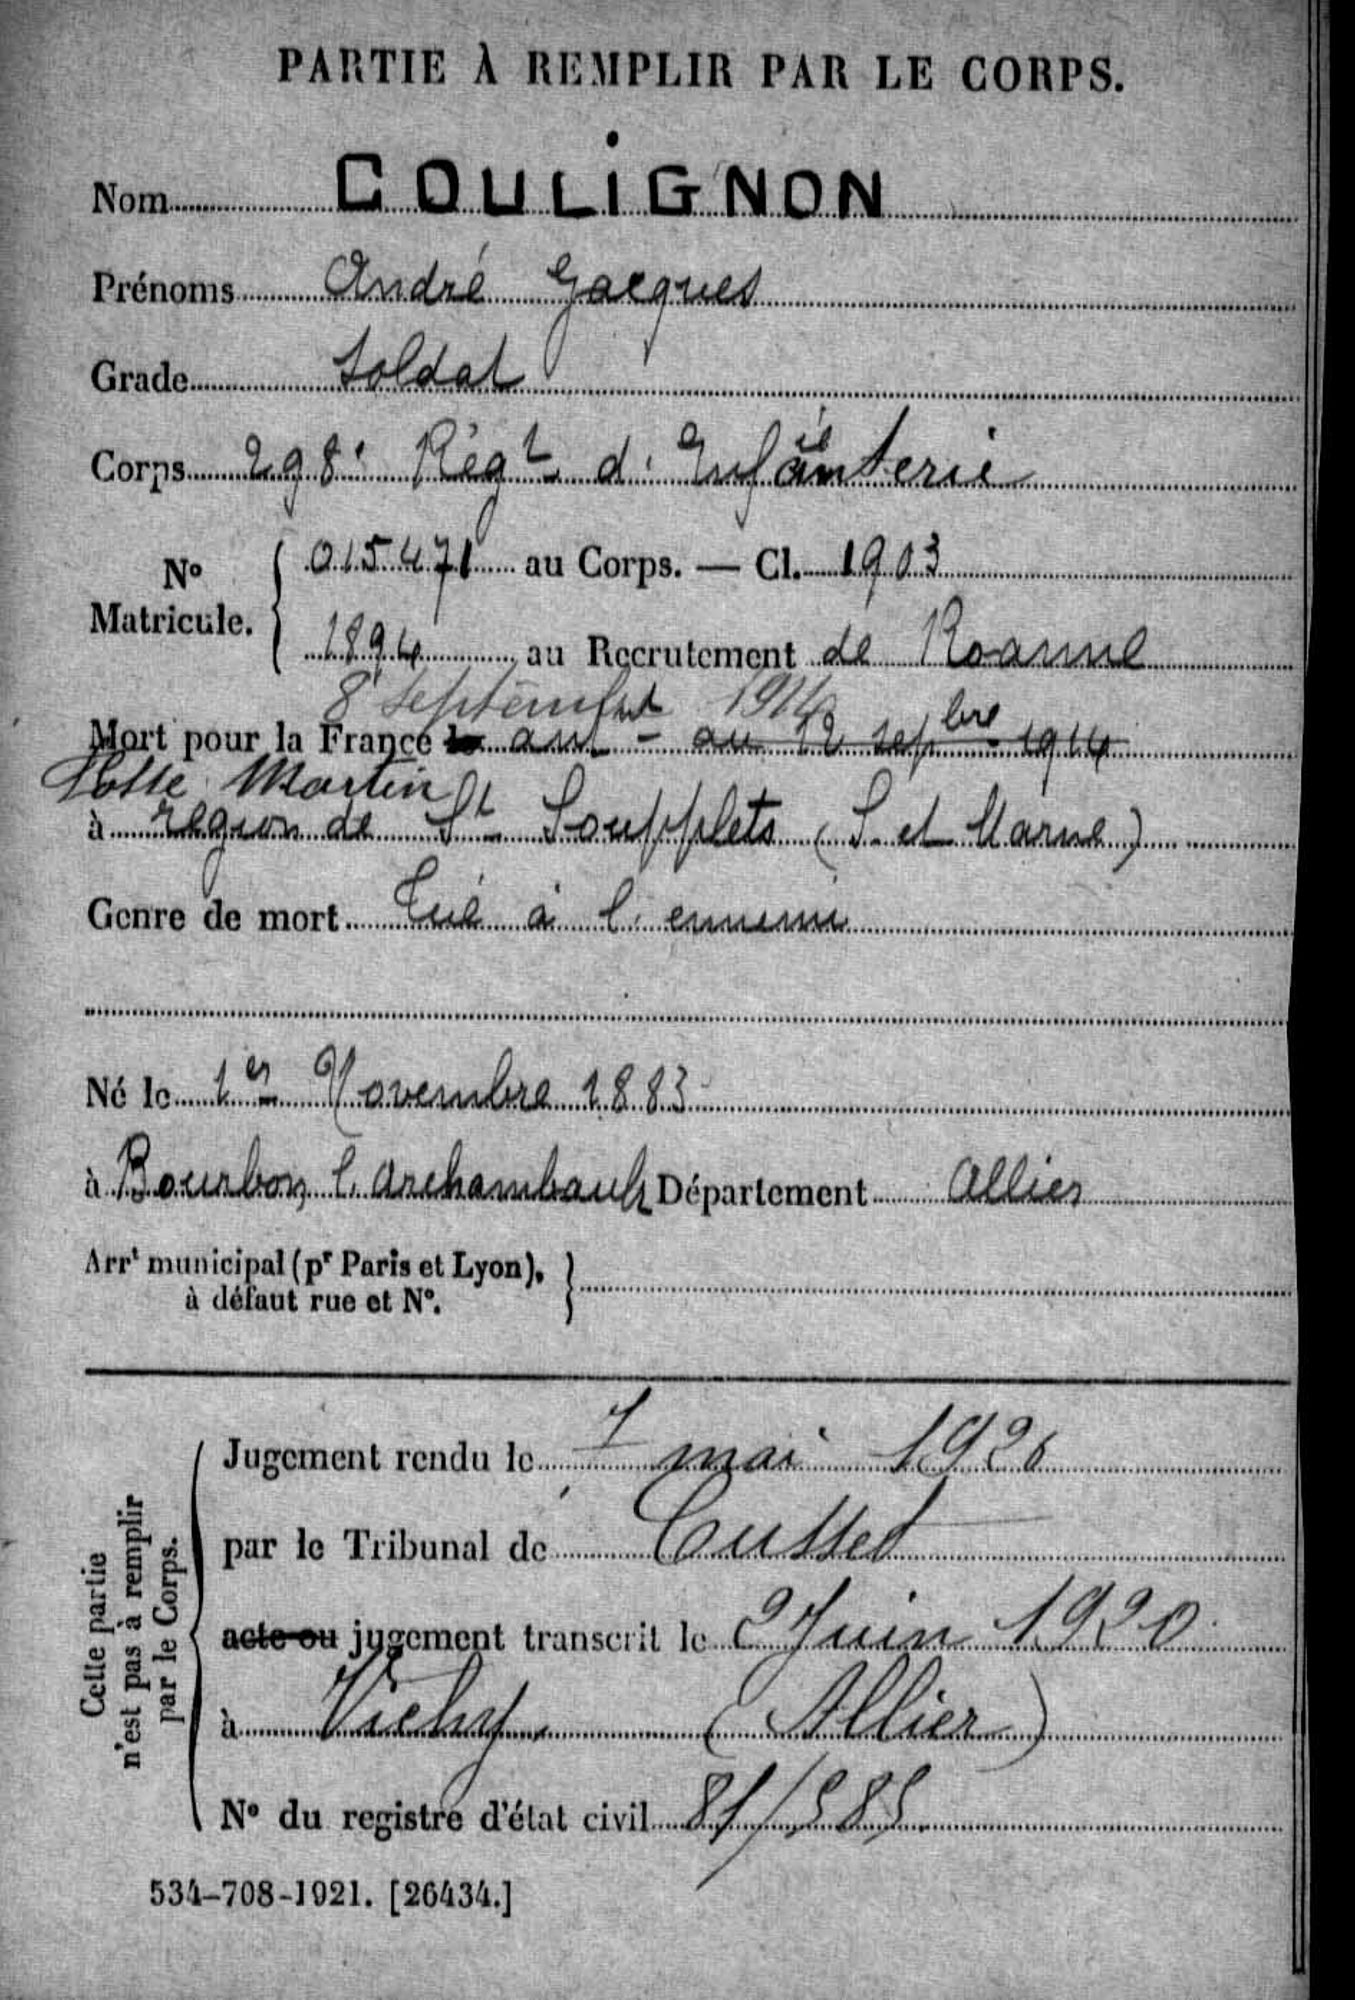 PARTIE À REMPLIR PAR LE CORPS.
Nom COULiGNON
Prénoms André Jacques
Grade Soldat
Corps 298e Régt d'Infanterie
No Matricule. 015471 au Corps. — Cl. 1903
1894 au Recrutement de Roanne
8 septembre 1914
Mort pour la France le au 12 sepbre 1914
Martin
à région de St Soupplets (S. et Marne)
Genre de mort Tué à l'ennemi
Né le 1er Novembre 1883
à Bourbon l'Archambault Département Allier
Arrt municipal (pr Paris et Lyon),
à défaut rue et No.
Cette partie
n'est pas à remplir
par le Corps.
Jugement rendu le 7 mai 1920
par le Tribunal de Cusset
acte ou jugement transcrit le 2 Juin 1920
à Vichy (Allier)
No du registre d'état civil 81/585
534-708-1921. [26434.]